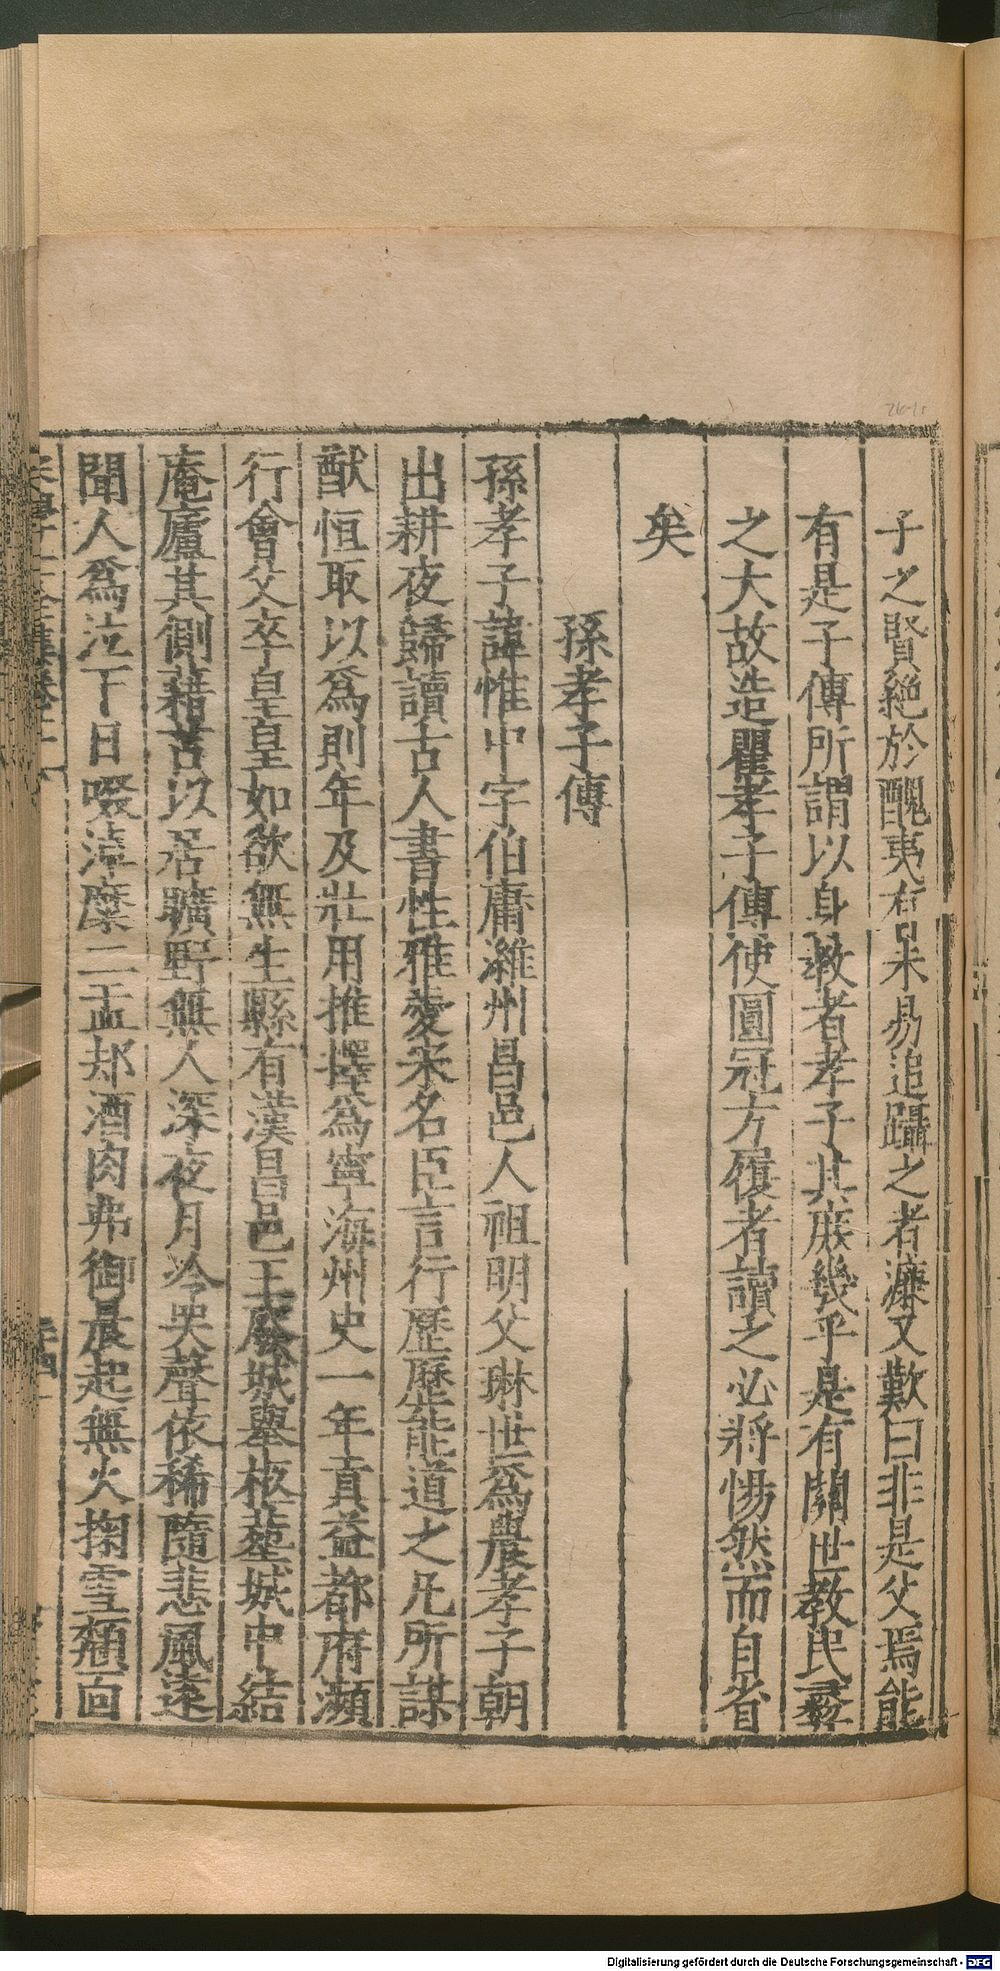 子之賢絕於醜夷有未易追躡之者濂又歎曰非是父焉能
有是子傳所謂以身教者孝子其庶幾乎是有關世教民彝
之大故造瞿孝子傳使圓冠方履者讀之必將惕然而自省
矣
孫孝子傳
孫孝子諱惟中字伯庸濰州昌邑人祖明父琳世爲農孝子朝
出耕夜歸讀古人書性雅愛宋名臣言行歷歷能道之凡所謀
猷恒取以爲則年及壯用推擇爲寧海州史一年貢益都府瀕
行會父卒皇皇如欲無生縣有漢昌邑王廢城舉柩塟城中結
庵廬其側藉苫以居曠野無人深夜月冷哭聲依稀隨悲風遠
聞人爲泣下日啜淖糜二盂却酒肉弗御晨起無火掬雪頮面
Digitalisierung gefördert durch die Deutsche Forschungsgemeinschaft - DFG